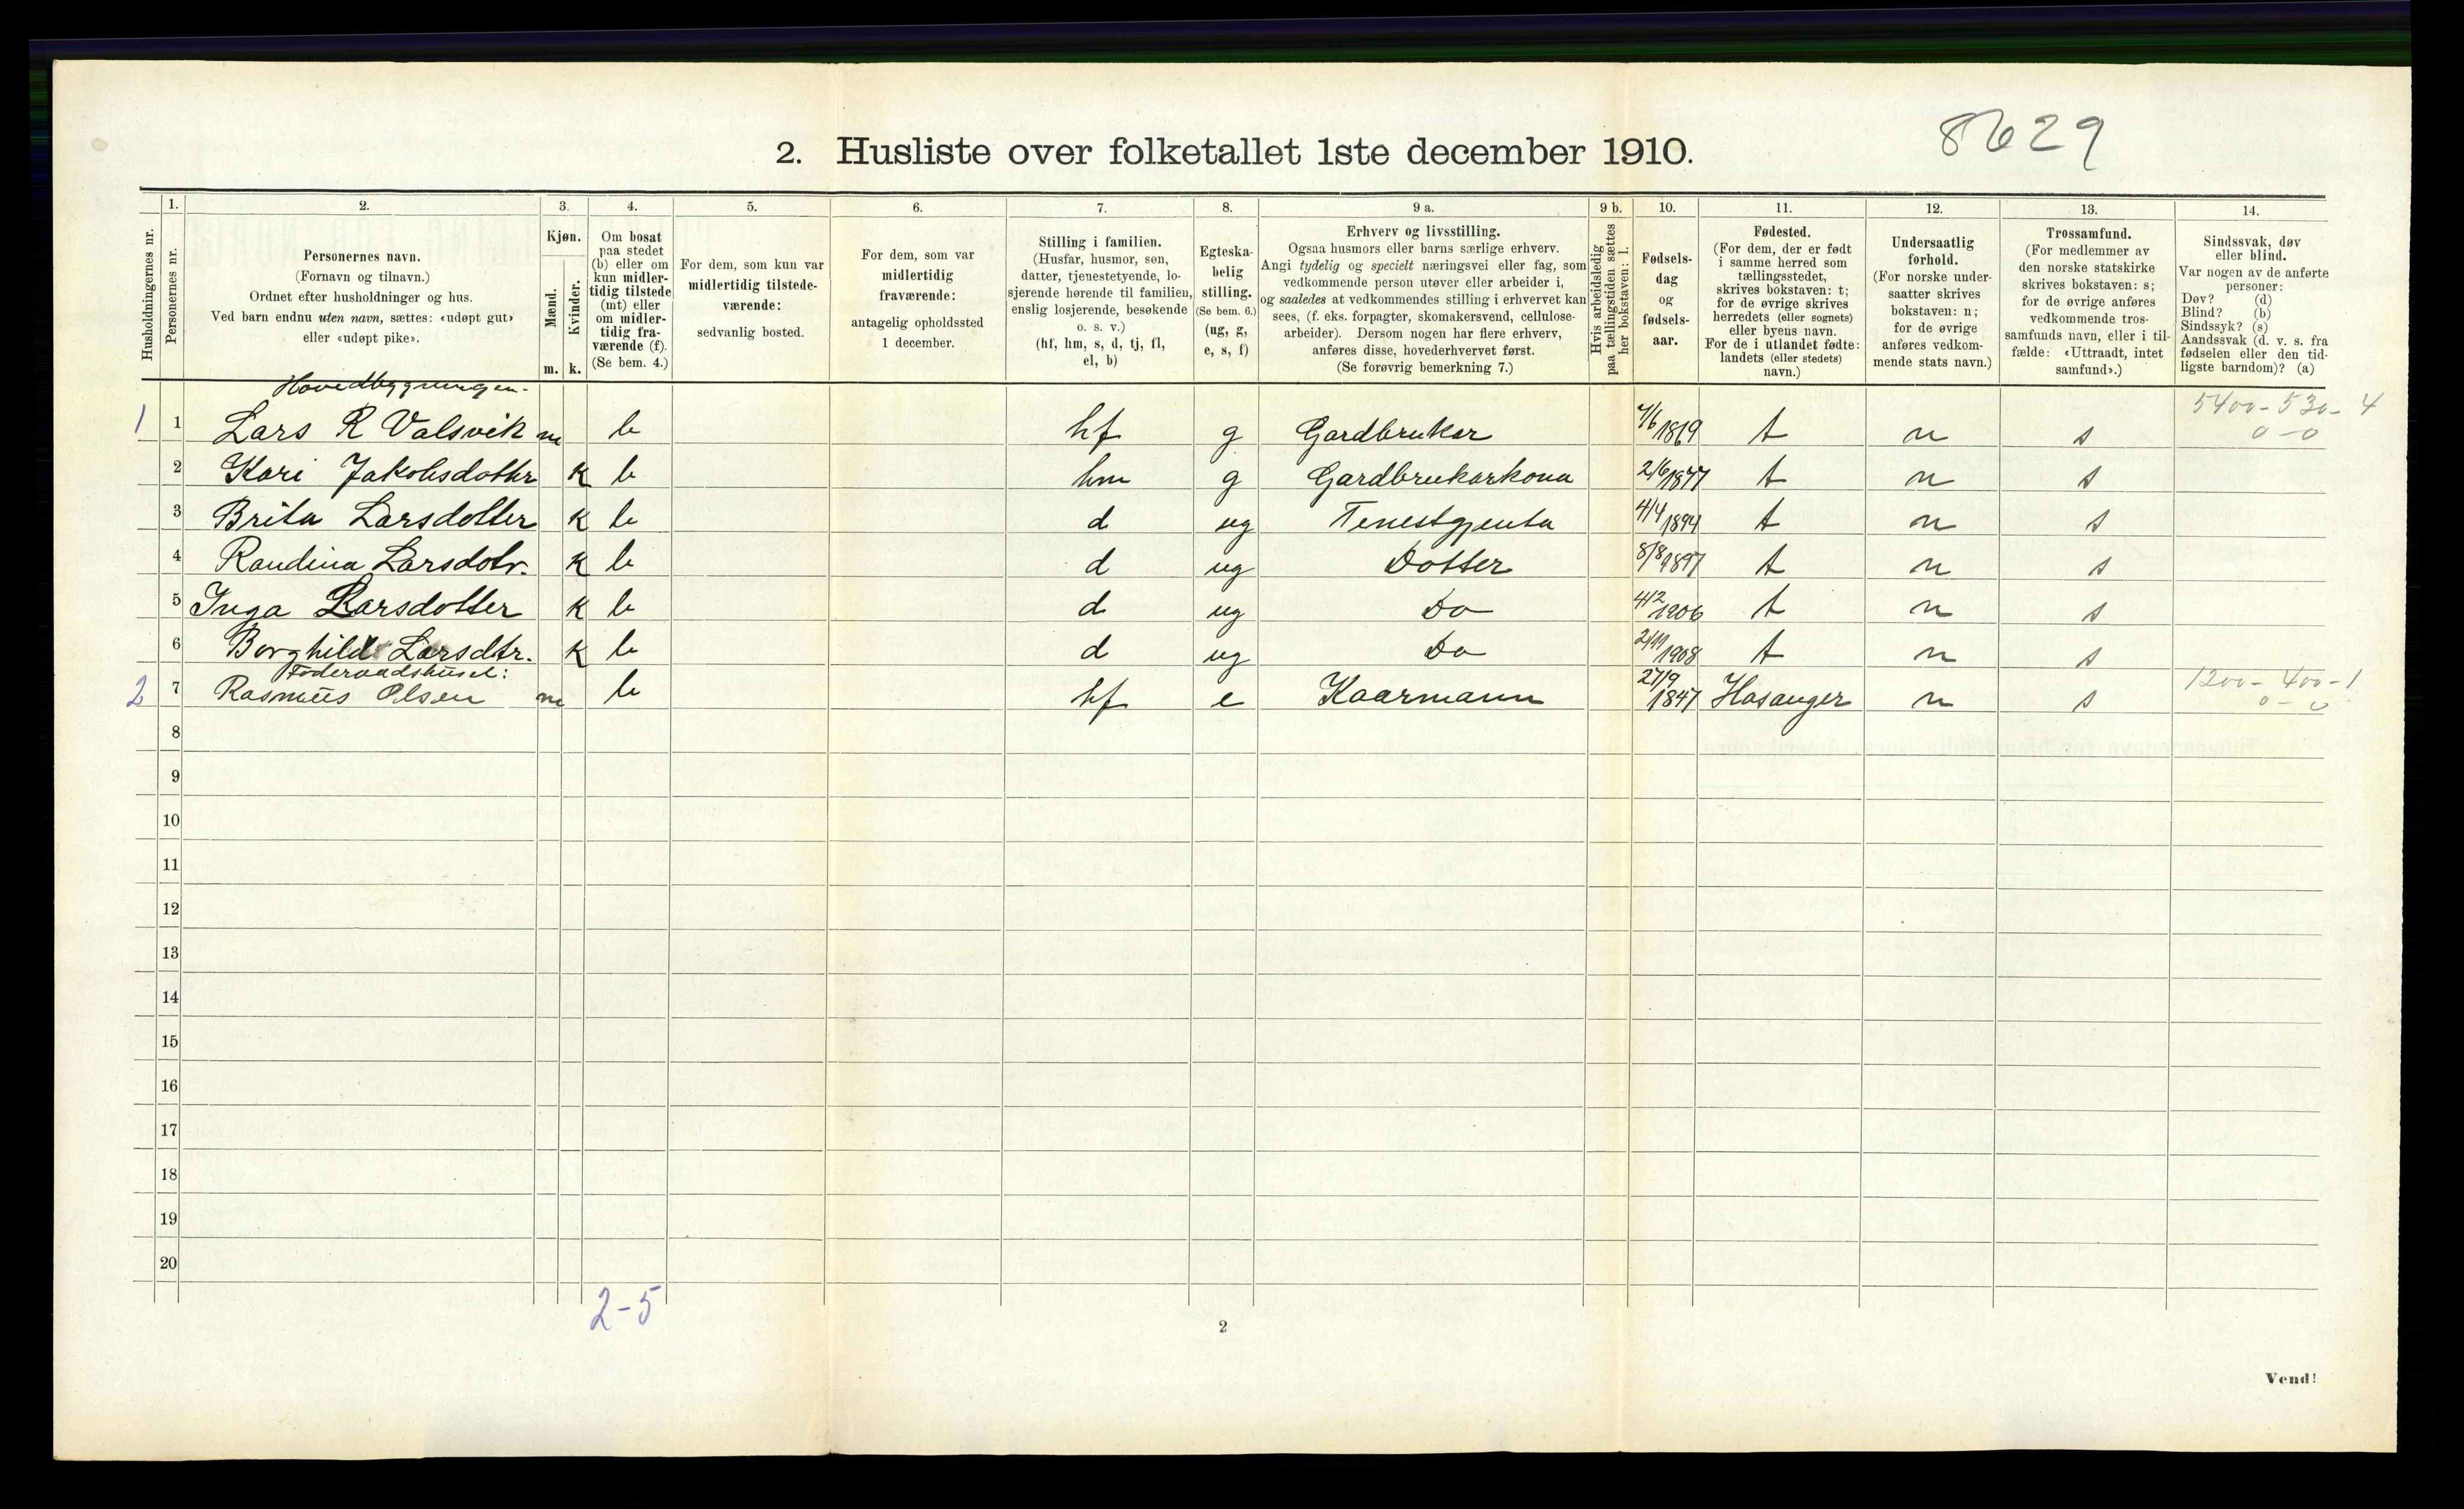 8629
2. Husliste over folketallet 1ste december 1910.
Husholdningernes nr.
1.
Personernes nr.
2.
Personernes navn.
(Fornavn og tilnavn.)
Ordnet efter husholdninger og hus.
Ved barn endnu uten navn, sættes: «udøpt gut»
eller «udøpt pike».
3.
Kjøn.
Mænd.
Kvinder.
m. k.
4.
Om bosat
paa stedet
(b) eller om
kun midler-
tidig tilstede
(mt) eller
om midler-
tidig fra-
værende (f).
(Se bem. 4.)
5.
For dem, som kun var
midlertidig tilstede-
værende:
sedvanlig bosted.
6.
For dem, som var
midlertidig
fraværende:
antagelig opholdssted
1 december.
7.
Stilling i familien.
(Husfar, husmor, søn,
datter, tjenestetyende, lo-
sjerende hørende til familien,
enslig losjerende, besøkende
o. s. v.)
(hf, hm, s, d, tj, fl,
el, b)
8.
Egteska-
belig
stilling.
(Se bem. 6.)
(ug, g,
e, s, f)
9 a.
Erhverv og livsstilling.
Ogsaa husmors eller barns særlige erhverv.
Angi tydelig og specielt næringsvei eller fag, som
vedkommende person utøver eller arbeider i,
og saaledes at vedkommendes stilling i erhvervet kan
sees, (f. eks. forpagter, skomakersvend, cellulose-
arbeider). Dersom nogen har flere erhverv,
anføres disse, hovederhvervet først.
(Se forøvrig bemerkning 7.)
9 b.
Hvis arbeidsledig
paa tællingstiden sættes
her bokstaven: l.
10.
Fødsels-
dag
og
fødsels-
aar.
11.
Fødested.
(For dem, der er født
i samme herred som
tællingsstedet,
skrives bokstaven: t;
for de øvrige skrives
herredets (eller sognets)
eller byens navn.
For de i utlandet fødte:
landets (eller stedets)
navn.)
12.
Undersaatlig
forhold.
(For norske under-
saatter skrives
bokstaven: n;
for de øvrige
anføres vedkom-
mende stats navn.)
13.
Trossamfund.
(For medlemmer av
den norske statskirke
skrives bokstaven: s;
for de øvrige anføres
vedkommende tros-
samfunds navn, eller i til-
fælde: «Uttraadt, intet
samfund».)
14.
Sindssvak, døv
eller blind.
Var nogen av de anførte
personer:
Døv? (d)
Blind? (b)
Sindssyk? (s)
Aandssvak (d. v. s. fra
fødselen eller den tid-
ligste barndom)? (a)
Hovedbygningen.
1 1 Lars R Valsvik m b hf g Gardbrukar 1869 t n s 5400-530-4
0-0
2 Kari Jakobsdotter k b hm g Gardbrukarkona 2/6 1877 t n s
3 Brita Larsdotter k b d ug Tenestgjenta 4/4 1894 t n s
4 Raudina Larsdotr. k b d ug Dotter 8/8 1897 t n s
5 Inga Larsdotter k b d ug Do 4/2 1906 t n s
6 Borghild Larsdtr. k b d ug Do 2/11 1908 t n s
Føderaadshuset:
2 7 Rasmus Olsen m b hf e Kaarmann 27/9 1847 Hosanger n s 1200-400-1
0-0
8
9
10
11
12
13
14
15
16
17
18
19
20
2-5
2
Vend!